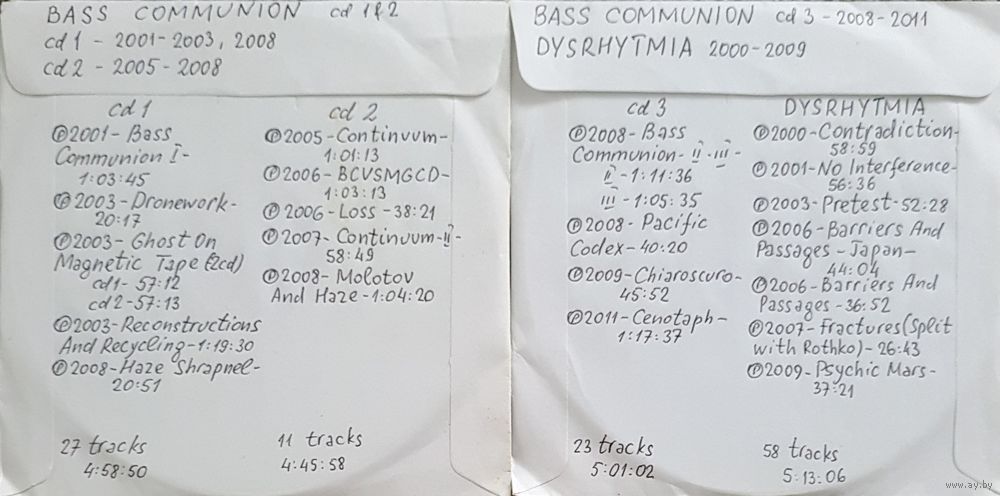 BASS COMMUNION cd 1&2
cd 1 - 2001-2003, 2008
cd 2 - 2005-2008
cd 1
℗2001-Bass
Communion I-
1:03:45
℗2003-Dronework-
20:17
℗2003-Ghost On
Magnetic Tape (2cd)
cd1-57:12
cd2-57:13
℗2003-Reconstructions
And Recycling-1:19:30
℗2008-Haze Shrapnel-
20:51
27 tracks
4:58:50
cd 2
℗2005-Continuum-
1:01:13
℗2006-BCVSMGCD-
1:03:13
℗2006-Loss-38:21
℗2007-Continuum-II-
58:49
℗2008-Molotov
And Haze-1:04:20
11 tracks
4:45:58
BASS COMMUNION cd 3-2008-2011
DYSRHYTMIA 2000-2009
cd 3
℗2008-Bass
Communion-II-III-
II-1:11:36
III-1:05:35
℗2008-Pacific
Codex-40:20
℗2009-Chiaroscuro-
45:52
℗2011-Cenotaph-
1:17:37
23 tracks
5:01:02
DYSRHYTMIA
℗2000-Contradiction-
58:59
℗2001-No Interference-
56:36
℗2003-Pretest-52:28
℗2006-Barriers And
Passages-Japan-
44:04
℗2006-Barriers And
Passages-36:52
℗2007-Fractures(Split
with Rothko)-26:43
℗2009-Psychic Mars-
37:21
58 tracks
5:13:06
www.ay.by